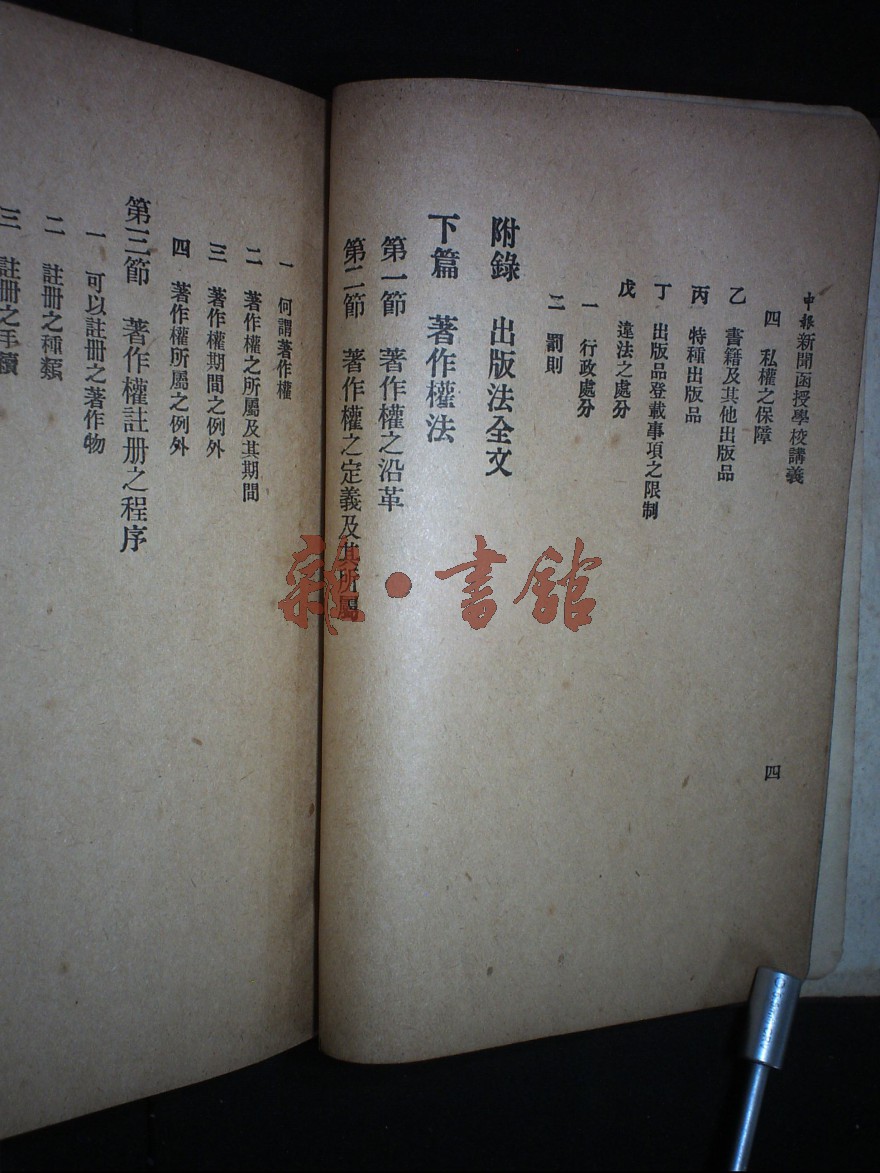 申報新聞函授學校講義
四 私權之保障
乙 書籍及其他出版品
丙 特種出版品
丁 出版品登載事項之限制
戊 違法之處分
一 行政處分
二 罰則
附錄 出版法全文
下篇 著作權法
第一節 著作權之沿革
第二節 著作權之定義及其所屬
四
一 何謂著作權
二 著作權之所屬及其期間
三 著作權期間之例外
四 著作權所屬之例外
第三節 著作權註册之程序
一 可以註册之著作物
二 註册之種類
三 註册之手續
雜·書館